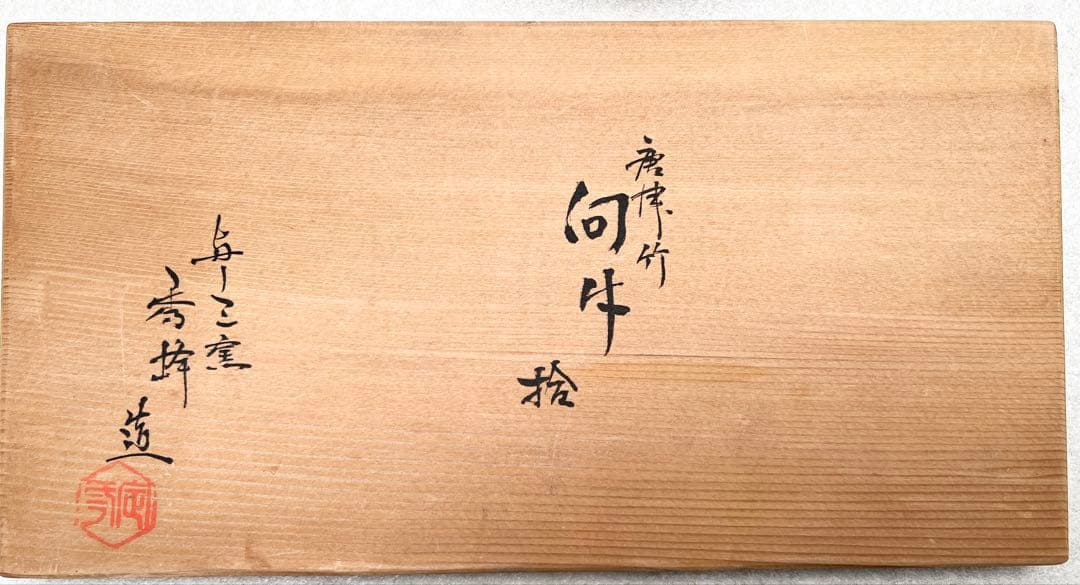 唐津竹
向付
拾
与し三窯
秀峰
造